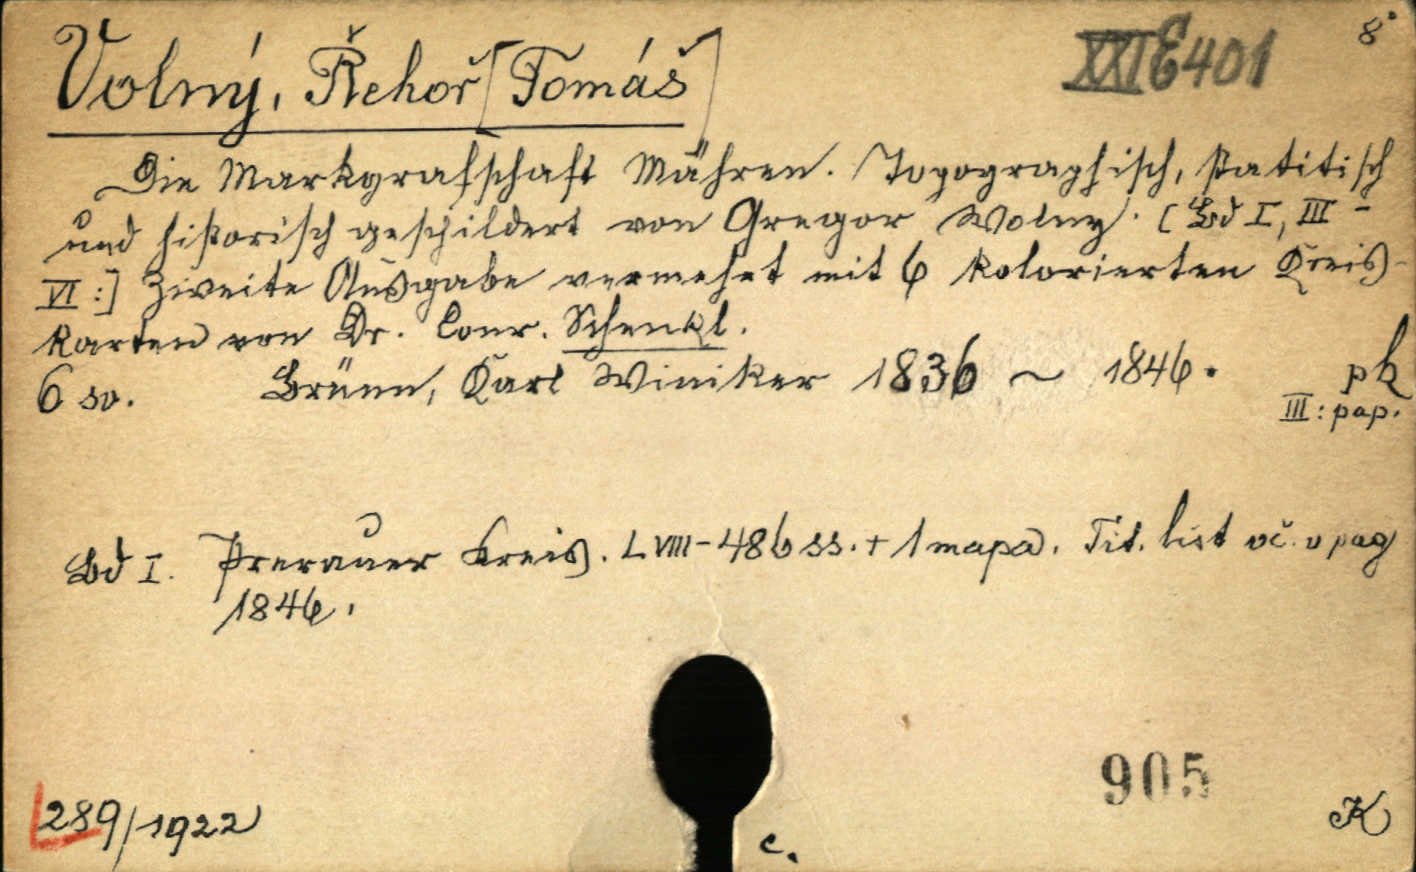 XXI E 401 8°
Volný, Řehoř [Tomáš]
Die Markgrafschaft Mähren. Topographisch, statitisch
und historisch geschildert von Gregor Wolny. [Bd I, III -
VI :] Zweite Ausgabe vermehrt mit 6 kolorierten Kreis-
karten von Dr. Conr. Schenkl.
6 sv. Brünn, Karl Winiker 1836 ~ 1846. pk
III : pap.
Bd I. Prerauer Kreis. LVIII - 486 ss. + 1 mapa. Tit. list vč. v pag
1846.
905
289/1922 K
c.